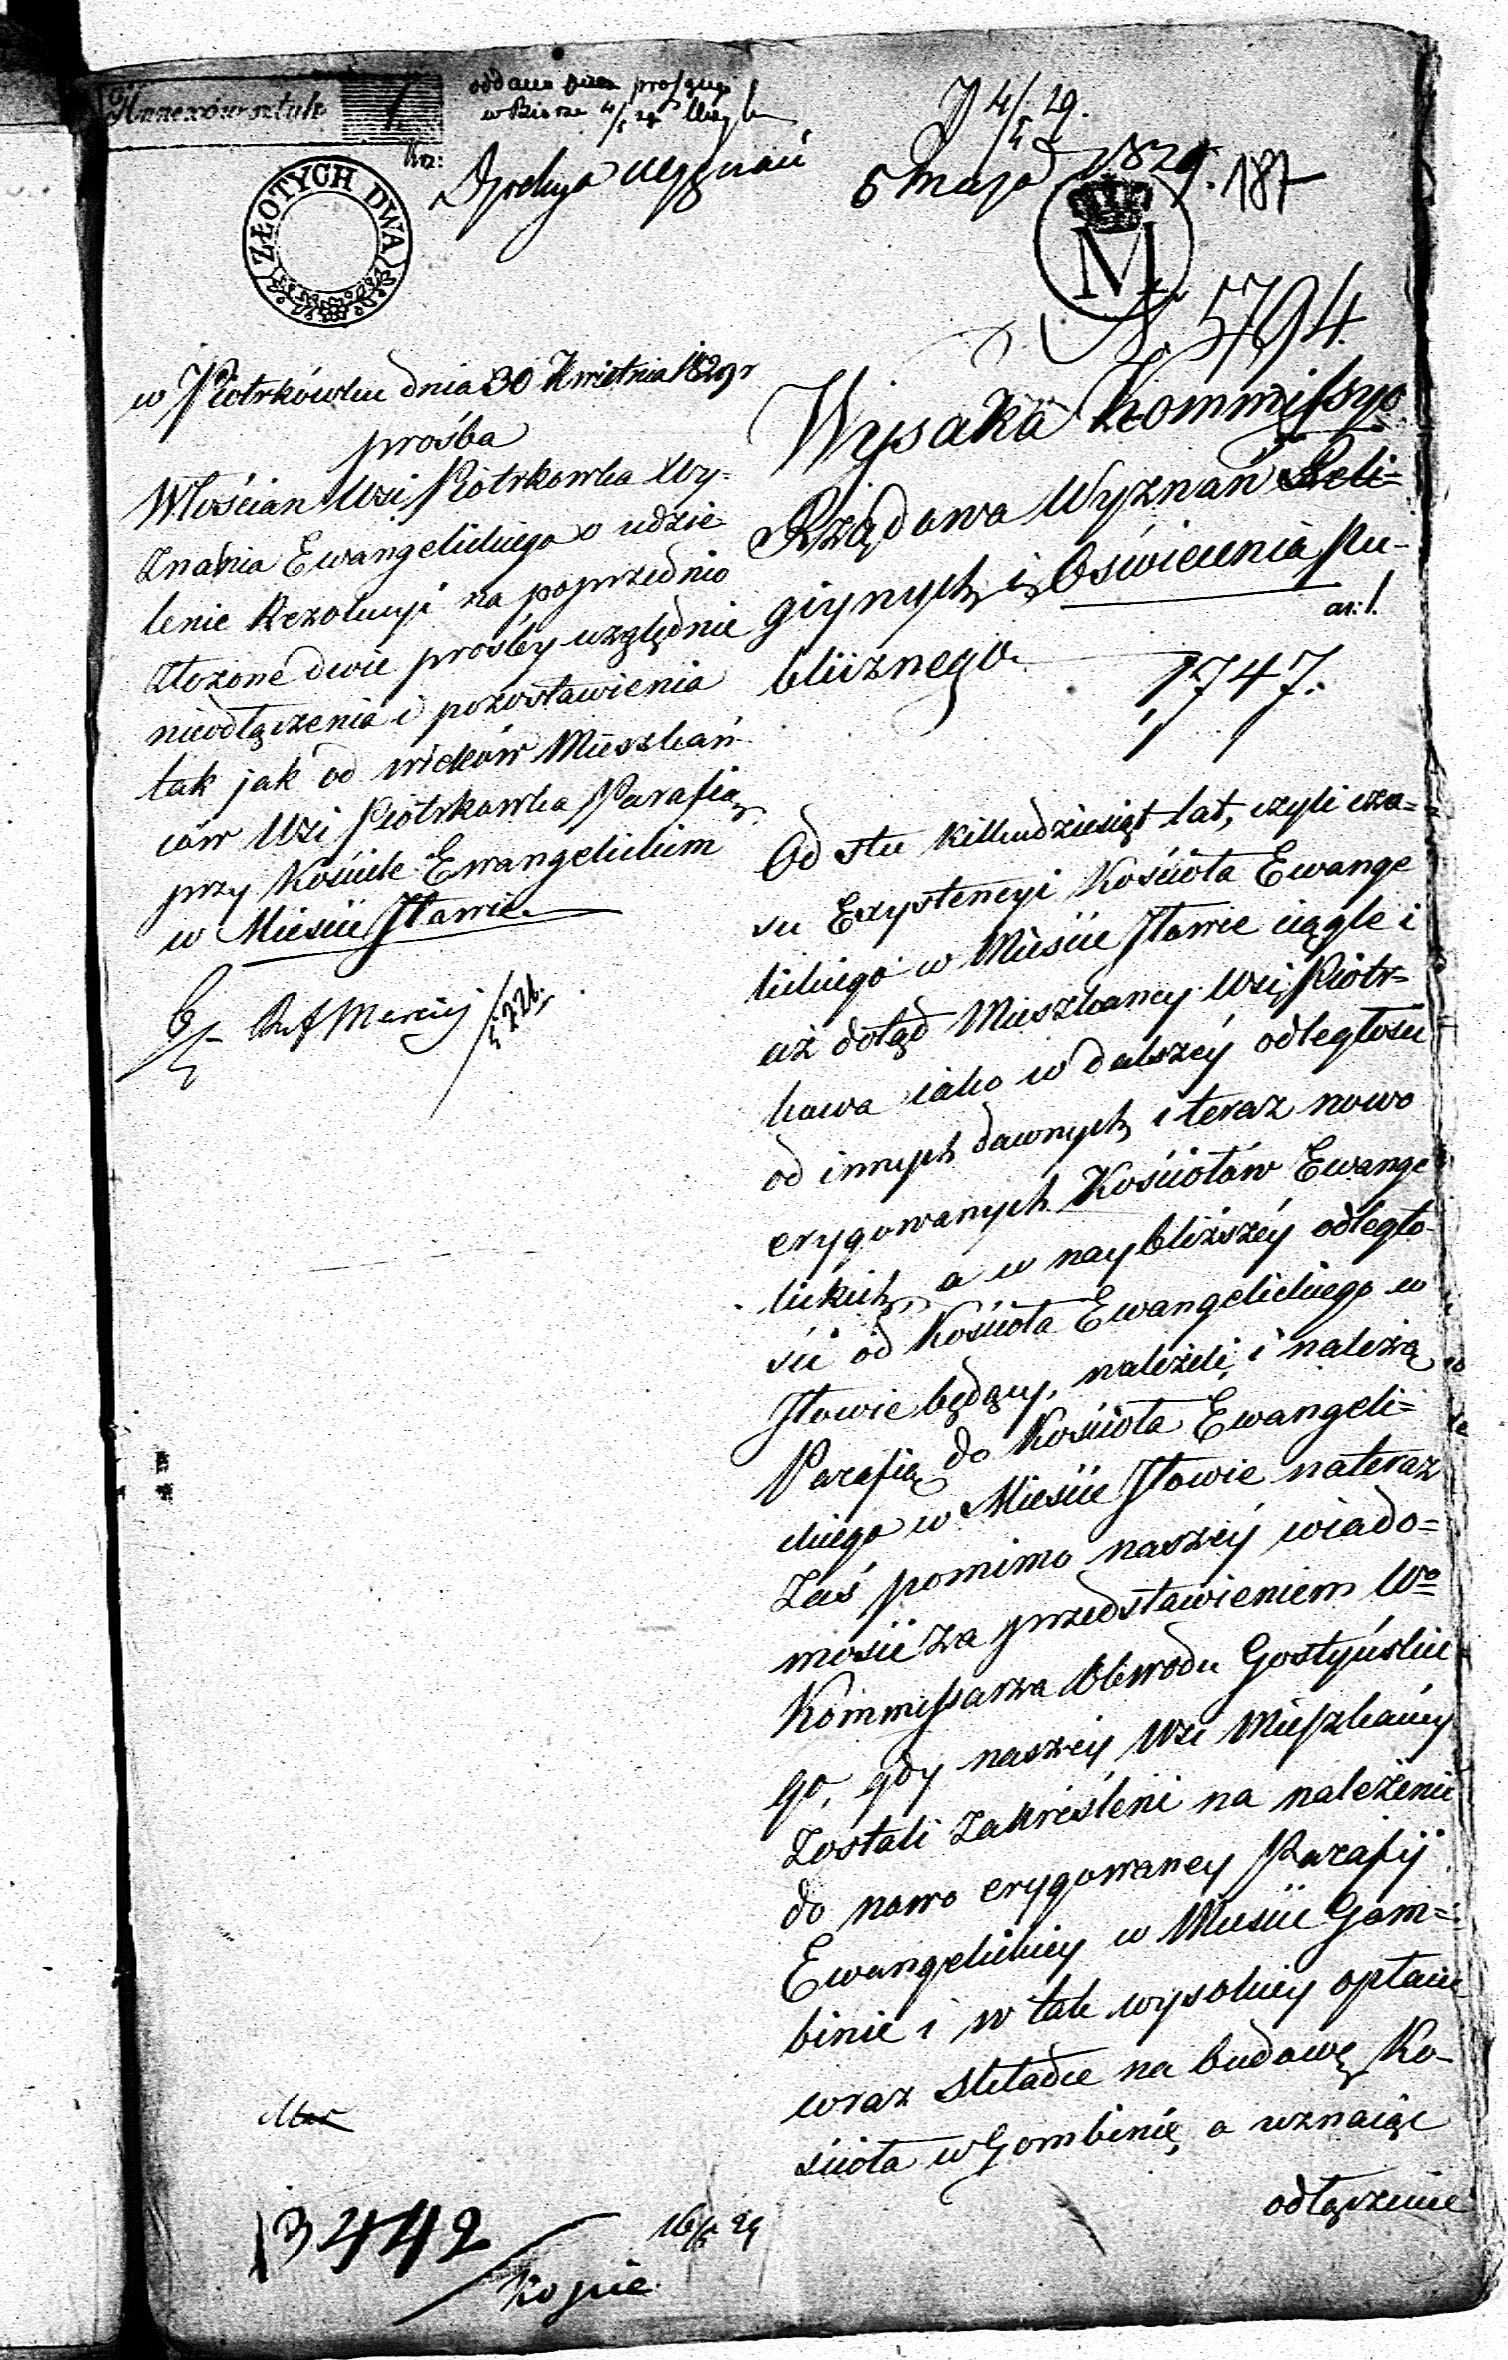 Annexów sztuk 1
J 4/5 29.
Dyrekcya wyznań
5 Maja 1829. 187
ZŁOTYCH DWA
M
N 5794.
w Piotrkówku dnia 30 Kwietnia 1829 r
prośba
Włościan Wsi Piotrkowka Wy-
znania Ewangelickiego o udzie
lenie Rezolucyi na poprzednio
złożone dwie prośby względnie
nieodłączenia i pozostawienia
tak jak od wieków Mieszkań
ców Wsi Piotrkowka Parafią
przy Kościele Ewangelickim
w Mieście Iłowie.
Wysoka Kommissyo
Rządowa Wyznań Reli=
giynych i Oświecenia Pu-
blicznego.
1747.
Od stu kilkudziesiąt lat, czyli cza=
su Exystencyi Kościoła Ewange
lickiego w Mieście Iłowie ciągle i
aż dotąd Mieszkancy Wsi Piotr=
kowa iako w dalszéy odległości
od innych dawnych i teraz nowo
erygowanych Kościołów Ewange
lickich, a w naybliższéy odległo-
ści od Kościoła Ewangelickiego w
Iłowie będący, należeli i należą
Parafią do Kościoła Ewangeli=
ckiego w Mieście Iłowie nateraz
zaś pomimo naszéy wiado=
mości za przedstawieniem Wo
Kommissarza Obwodu Gostyńskie
go, gdy naszéy Wsi Mieszkańcy
zostali zakreśleni na należenie
do nowo erygowaney Parafij
Ewangelickiey w Mieście Gom=
binie i w tak wysokiey opłacie
wraz składce na budowę Ko-
ścioła w Gombinie, a uznaiąc
odłączenie
13442
16/5 29
kopie